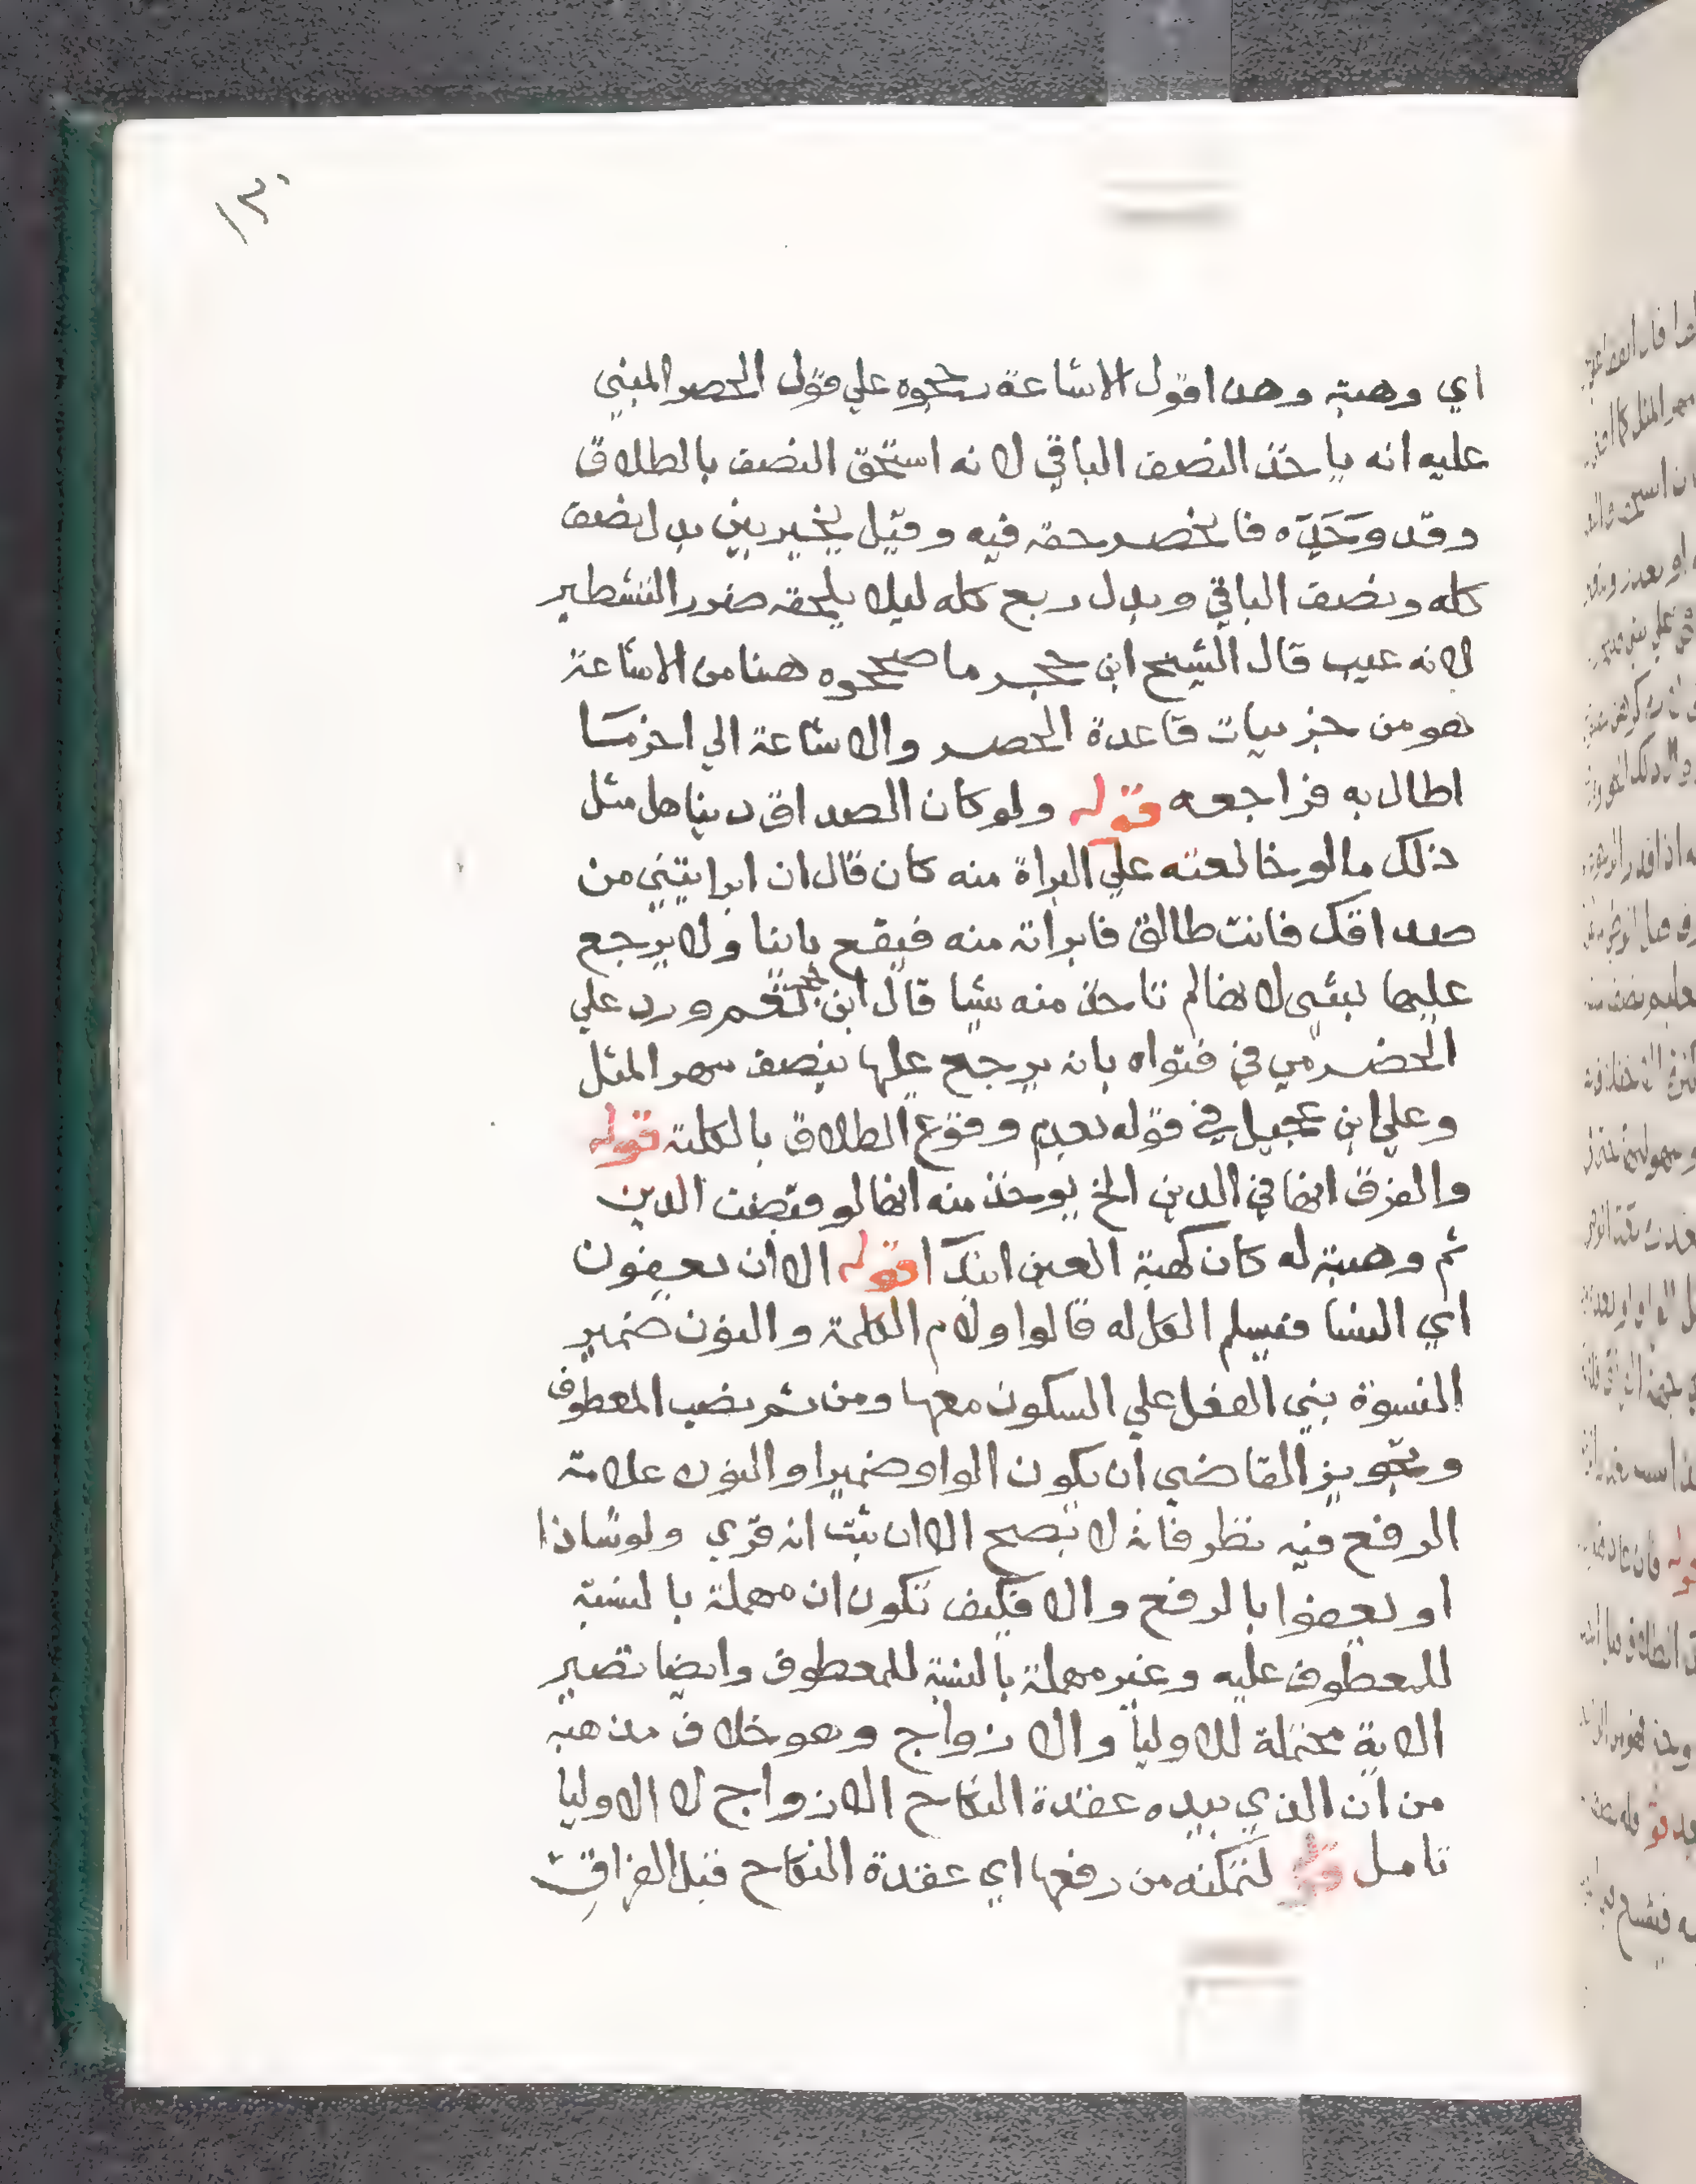 ١٣٠
اي وهبته وهذا قول الاشاعة رجحوه علي قول الحصر المبني
عليه انه ياخذ النصف الباقي لانه استحق النصف بالطلاق
وقد وَجَدَه فانحصر حقه فيه وقيل يخير بين بدل نصف
كله ونصف الباقي وبدل ربع كله ليلا يلحقه ضرر التشطير
لانه عيب قال الشيخ ابن حجر ما صححوه هنا من الاشاعة
هو من جزييات قاعدة الحصر والاشاعة الي اخر مَا
اطال به فراجعه قوله ولو كان الصداق دينا هل مثل
ذلك ما لو خالعته علي البراة منه كان قال ان ابرايتيني من
صداقك فانت طالق فابراته منه فيقع باينا ولا يرجع
عليها بشي لانها لم تاخذ منه شيا قال ابن حجر نعم ورد علي
الحضرمي في فتواه بانه يرجع عليها بنصف مهر المثل
وعلي ابن عجيل في قوله بعدم وقوع الطلاق بالكلية قوله
والفرق انها في الدين الخ يوخذ منه انها لو قبضت الدين
ثم وهبته له كان كهبة العين ابتدا قوله الا ان يعفون
اي النسا فيسلم الكل له قالوا ولام الكلمة والنون ضمير
النسوة بني الفعل علي السكون معها ومن ثم نصب المعطوف
وتجويز القاضي ان يكون الواو ضميرا والنون علامة
الرفع فيه نظر فانه لا يصح الا ان ثبت انه قري ولو شاذا
او يعفوا بالرفع والا فكيف تكون ان مهملة بالنسبة
للمعطوف عليه وغير مهملة بالنسبة للمعطوف وايضا تصير
الاية محتملة للاوليا والازواج وهو خلاف مذهبه
من ان الذي بيده عقدة النكاح الازواج لا الاوليا
تامل قوله لتمكنه من رفعها اي عقدة النكاح قبل الفراق